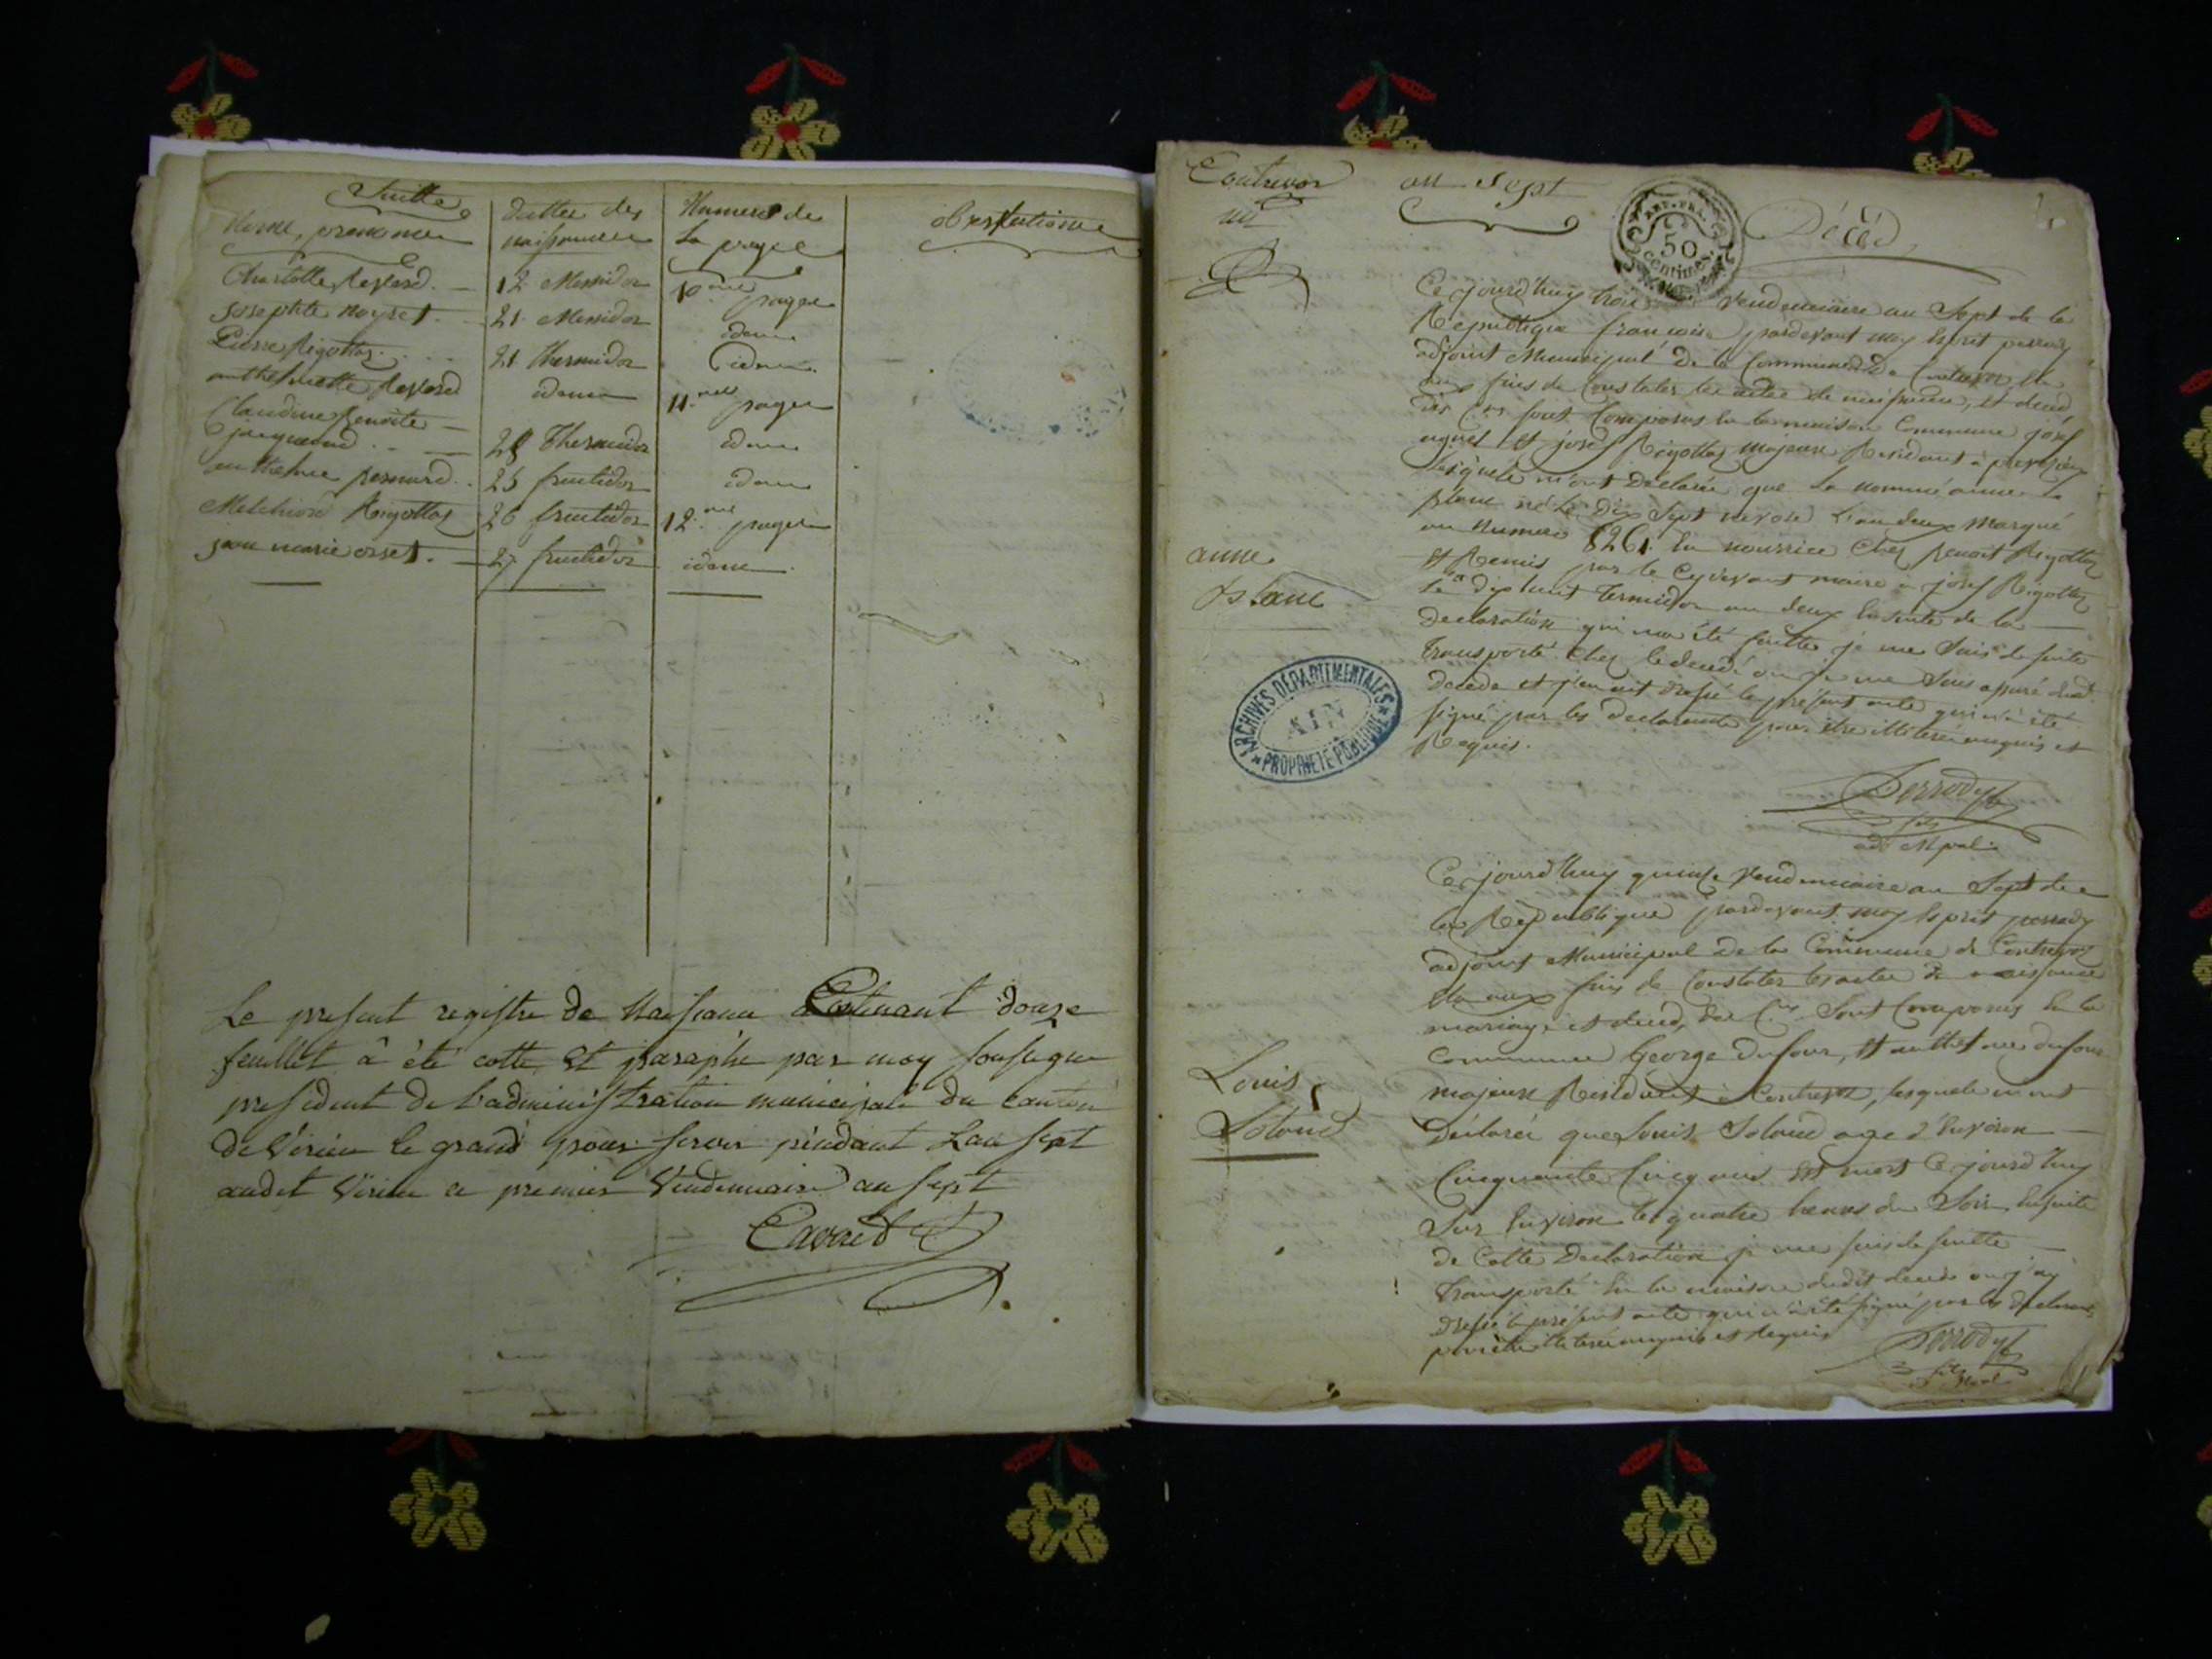 Suitte
Nome, prenomme
dattes des
naissances
Numero de
la page
observations
Charlotte Reylard. 12 Messidor 10.me page
Josephte noyret. 21 Messidor idem
Pierre Rigollos. 21 Thermidor idem
anthelmette Reylard idem 11.me page
Claudine Benoite
jacquand 28 Thermidor idem
anthelme bernard. 25 fructidor idem
Melchiore Rigollos 26 fructidor 12.me page
jean marie orset. 27 fructidor idem
Le present registre de Naissance Contenant douze
feuillet à été cotté et paraphé par moy soussigné
president de l'administration municipale du canton
de Virieu le grand pour servir pendant L'an sept
audit Virieu ce premier Vendemiaire an sept
Contrevoz
an Sept
REP. FRA.
50
centimes
Décéd
Ce jourd'huy trois Vendemiaire an Sept de la
Republique francoise pardevant moy Esprit perrody
adjoint Municipal de la Commune de Contrevoz
aux fins de Constater les actes de naissance, et deced
des C.ens sont Comparus en la maison Commune josef
et josef Rigollos majeurs Residants à
lesquels m'ont Declarée que la nommé anne la
blanc né le Dix Sept nivose l'an deux Marqué
au Numero 8261. en nourrice Chez benoit Rigollos
et Remis par le Cydevant maire à josef Rigollos
le dix huit Termidor an deux Ensuite de la
declaration qui m'a été faitte je me Suis de suite
transporté Chez le decedé ou je me Suis assuré dud.
deceda et j'en ait dressé le présent acte qui n'a été
signé par les declarants pour etre illiteré enquis et
Requis.
anne
blanc
ARCHIVES DÉPARTEMENTALES
AIN
PROPRIÉTÉ PUBLIQUE
Perrody
fils
adt Mpal
Ce jourd'huy quinze Vendemiaire an Sept de
la Republique pardevant moy Esprit perrody
adjoint Municipal de la Commune de Contrevoz
Elu aux fins de Constater les actes de naissance
mariage et deced, des C.ens Sont Comparus En la
Commune George dufour, et anthelme dufour
majeurs Residents à Contrevoz, lesquels m'ont
Déclarée que Louis Soloud age d'Environ
Cinquante Cinq ans Est mort Ce jourd'huy
Sur Environ les quatre heures du Soir, Ensuite
de Cette Declaration je me suis de suitte
transporté En la maison dudit decedé ou j'ay
dressé le présent acte qui n'a été signé par les declarants
pour être illiteré enquis et Requis
Louis
Soloud
Perrody
fils